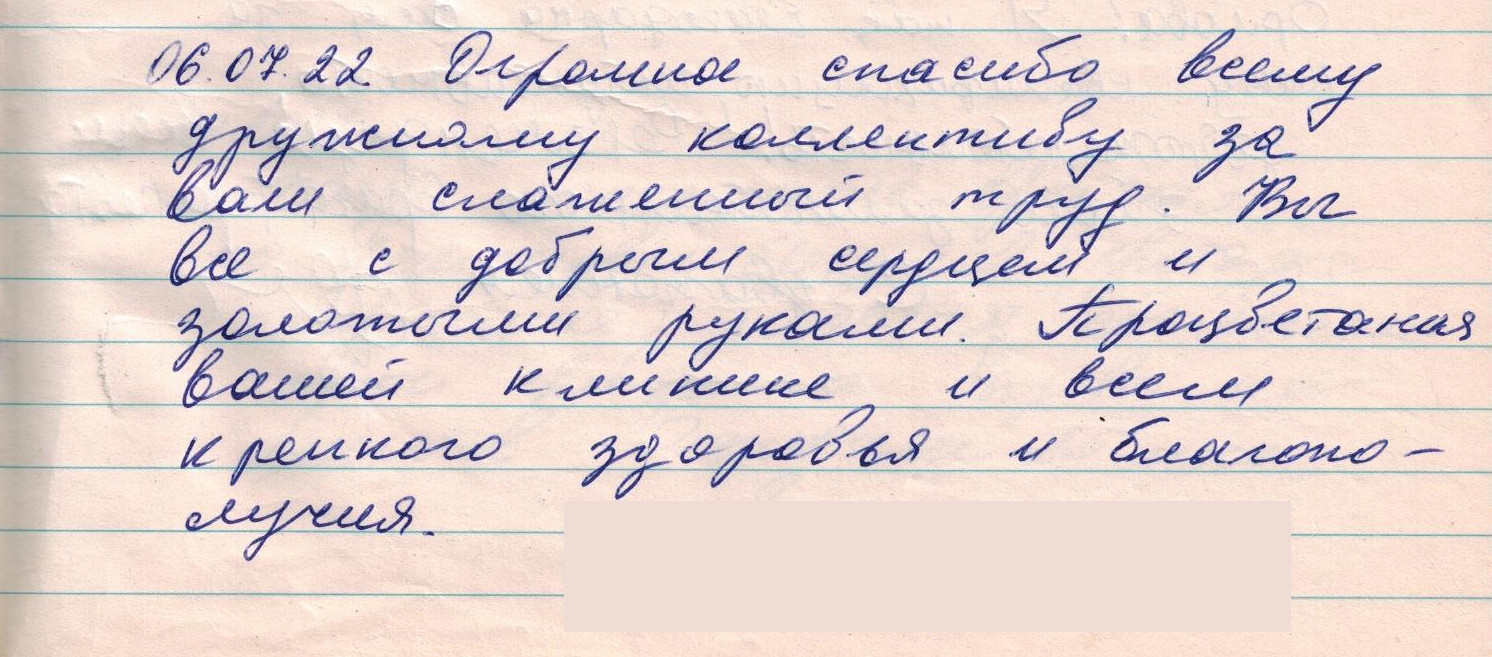 06.07.22 Огромное спасибо всему
дружному коллективу за
ваш слаженный труд. Вы
все с добрым сердцем и
золотыми руками. Процветания
вашей клинике и всем
крепкого здоровья и благопо-
лучия.